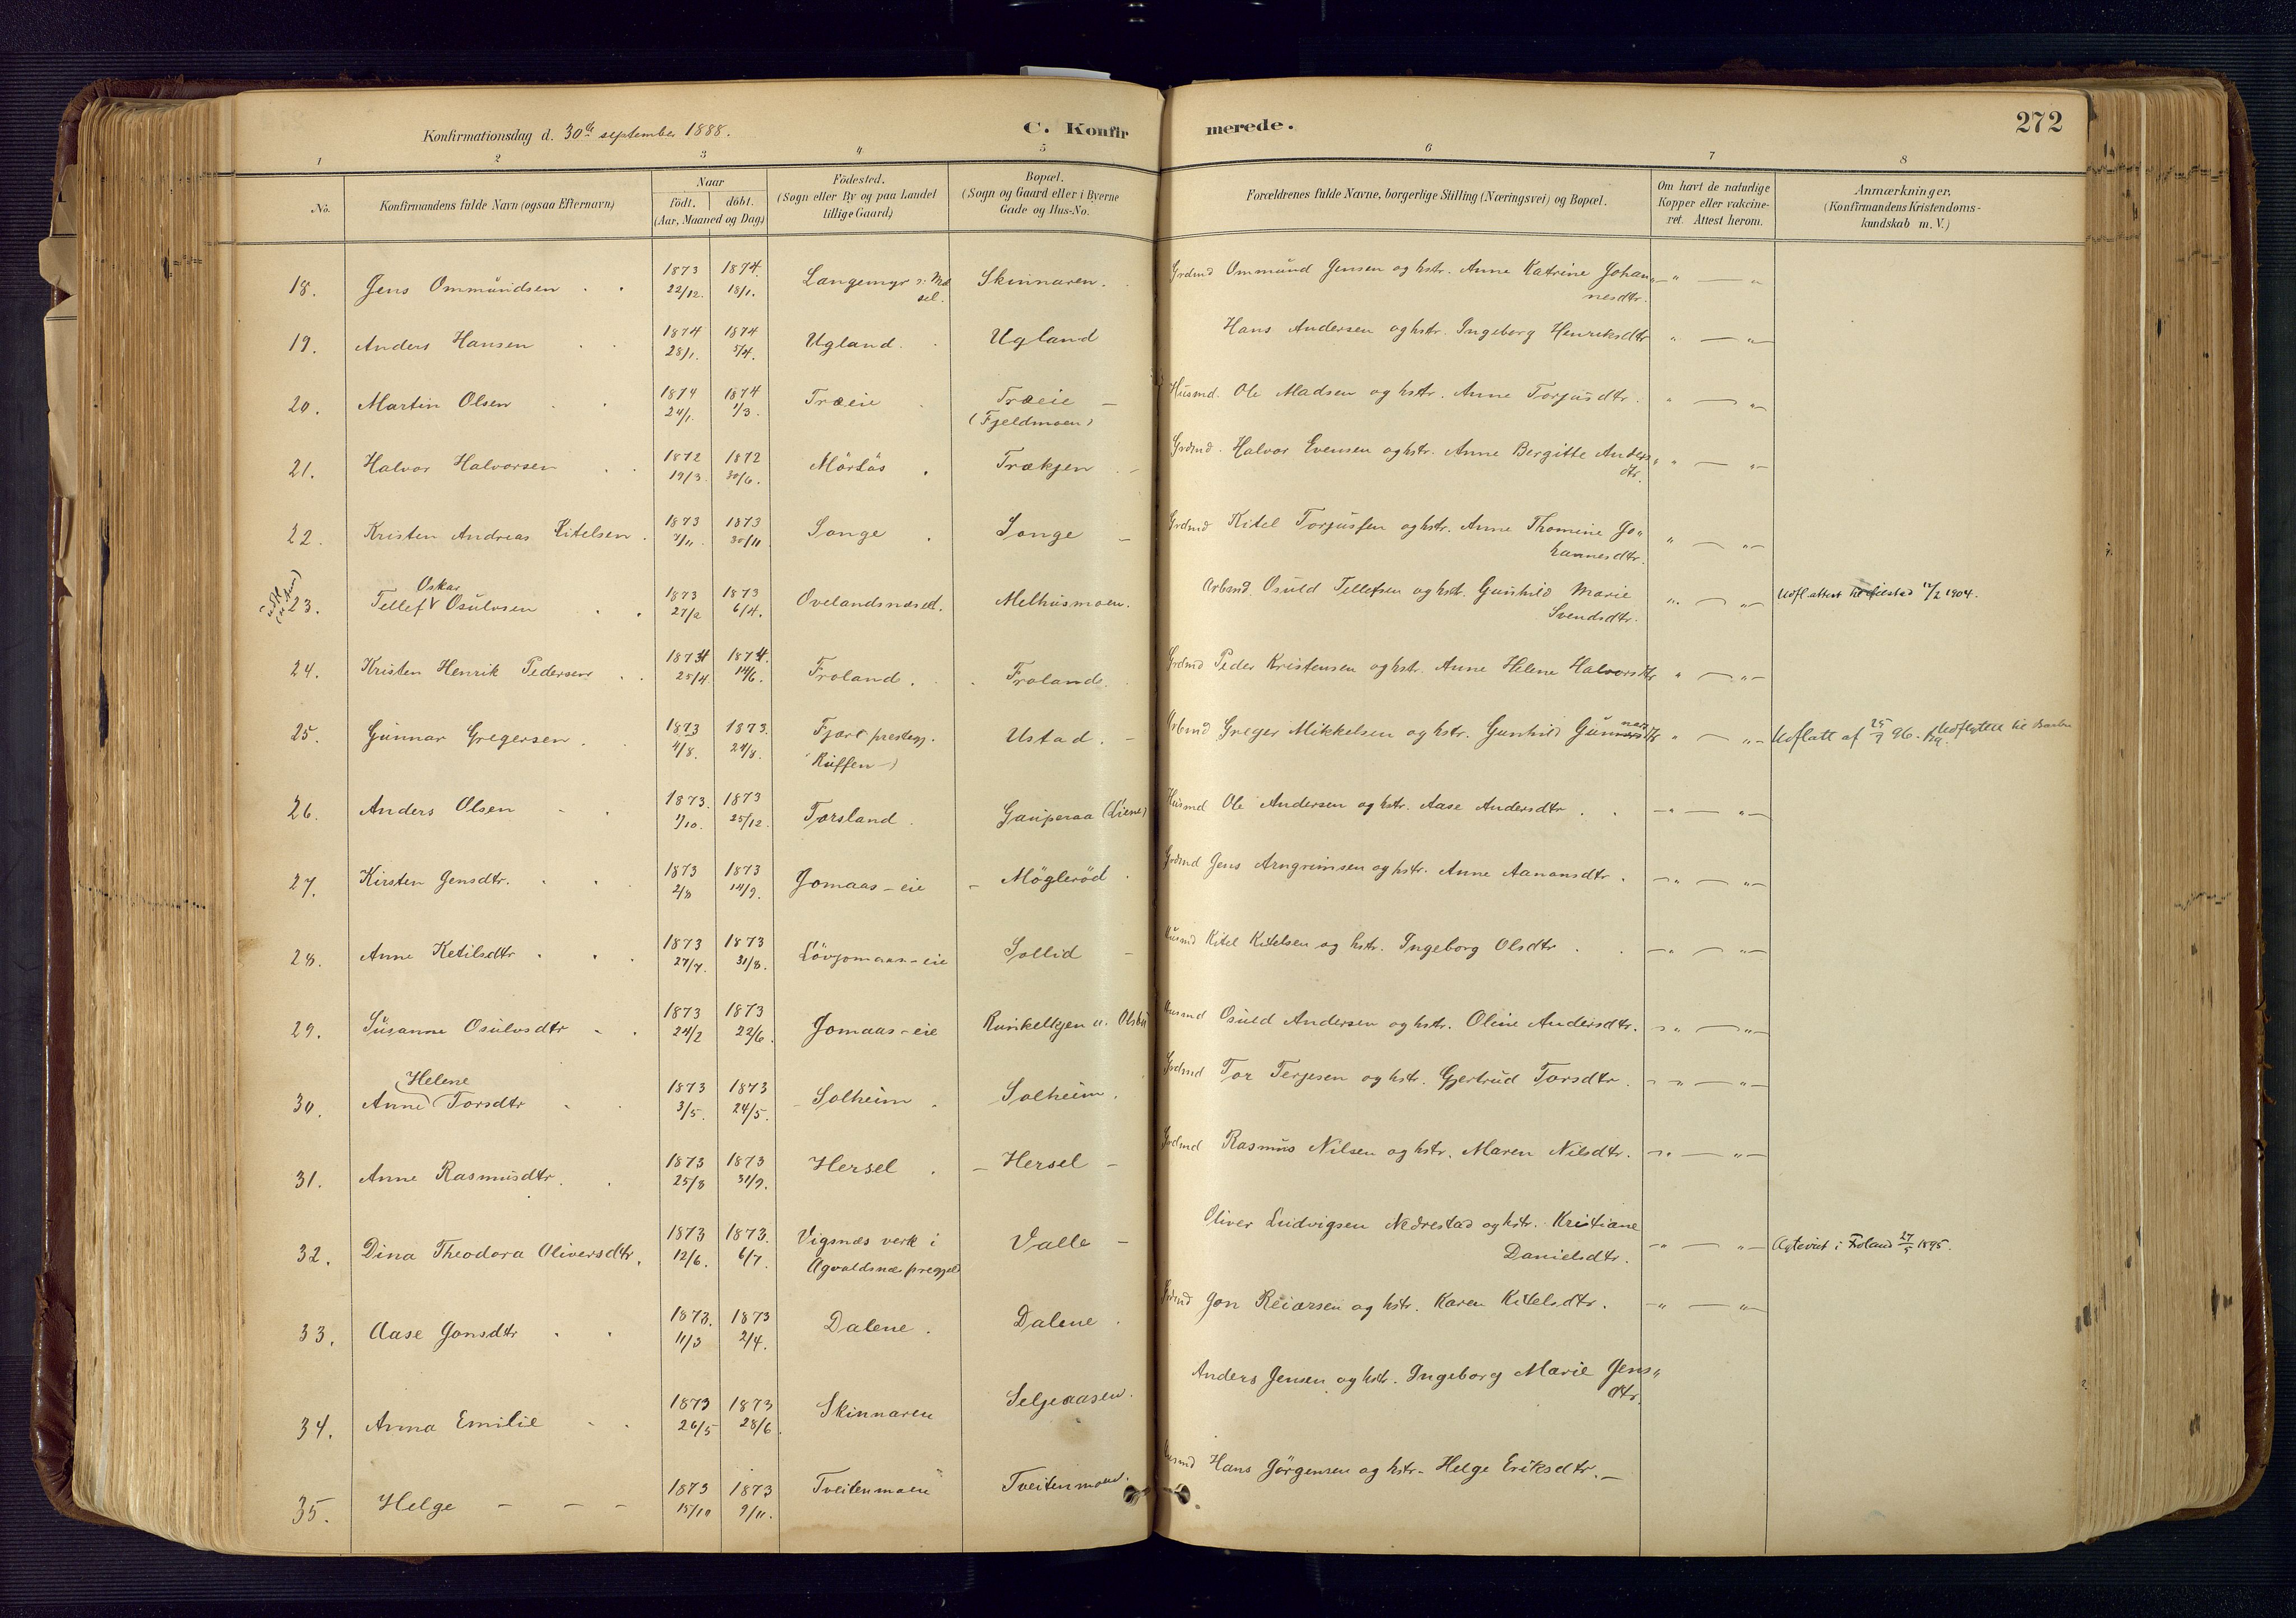 Konfirmationsdag d. 30th september 1888.
C. Konfirmerede.
272
1 2 3 4 5 6 7 8
No.
Konfirmandens fulde Navn (ogsaa Efternavn)
Naar
födt. döbt.
(Aar, Maaned og Dag)
Födested.
(Sogn eller By og paa Landet
tillige Gaard)
Bopæl.
(Sogn og Gaard eller i Byerne
Gade og Hus-No.
Forældrenes fulde Navne, borgerlige Stilling (Næringsvei) og Bopæl.
Om havt de naturlige
Kopper eller vakcine-
ret. Attest herom.
Anmærkninger.
(Konfirmandens Kristendoms-
kundskab m. V.)
18. Jens Ommundsen 1873 22/12. 1874. 18/1. Langemyr Skinnaren. Grdmd Ommund Jensen og hstr. Anne Katrine Johan„
nesdtr.
19. Anders Hansen 1874 28/1. 1874 5/4. Ugland. Ugland Hans Andersen og hstr. Ingeborg Henriksdtr
20. Martin Olsen 1874 24/1. 1874 1/3. Træeie Træeie
(Fjeldmoen)
Husmd. Ole Madsen og hstr. Anne Torjusdtr.
21. Halvor Halvorsen 1872 19/3. 1872 30/6. Mörlås Trækjen Grdmd. Halvor Evensen og hstr. Anne Bergitte Anders„
dtr.
22. Kristen Andreas Kitelsen. 1873 7/11 1873 30/11 Songe Songe Grdmd Kitel Torjusſen og hstr. Anne Thomine Jo„
hannesdtr.
23. Tellef Oskar Osulvsen 1873 27/2 1873 6/4. Ovelandsnæset. Melhusmoen. Arbmd. Osuld Tellefsen og hstr. Gunhild Marie
Svendsdtr.
Udfl.attest 12/2 1904.
24. Kristen Henrik Pedersen 1874 25/4 1874. 14/6. Froland. Froland. Grdmd Peder Kristensen og hstr. Anne Helene Halvorsdtr
25. Gunnar Gregersen. 1873 4/8. 1873. 24/8. Fjære prestegj.
Ustad. Arbmd Greger Mikkelsen og hstr. Gunhild Gunnarsdtr
Udflatt af 25/7 96.
26. Anders Olsen 1873. 1/10. 1873 25/12. Torsland. Gauperaa (Liene) Husmd Ole Andersen og hstr. Aase Andersdtr
27. Kirsten Jensdtr. 1873 2/8 1873 14/9. Jomaas-eie Mögleröd Grdmd Jens Arngrimsen og hstr. Anne Aanonsdtr.
28. Anne Ketilsdtr 1873 27/7. 1873 31/8. Lövjomaas-eie Sollid Husmd Kitel Kitelsen og hstr. Ingeborg Olsdtr
29. Susanne Osulvsdtr 1873 24/2 1873 22/6. Jomaas-eie Husmd Osuld Andersen og hstr. Oline Andersdtr.
30. Anne Helene Torsdtr 1873 3/5. 1873 24/5. Solheim Solheim. Grdmd Tor Terjesen og hstr. Gjertrud Torsdtr.
31. Anne Rasmusdtr. 1873 25/8 1873 31/9. Hersel Hersel Grdmd Rasmus Nilsen og hstr. Maren Nilsdtr.
32. Dina Theodora Oliversdtr. 1873 12/6. 1873. 6/7. Vigsnæs verk i
Valle Oliver Ludvigsen Nedrestad og hstr. Kristiane
Danielsdtr.
Ægteviet i Froland 27/5 1895.
33. Aase Jonsdtr 1873. 11/3 1873 2/4. Dalene. Dalene. Grdmd Jon Reiarsen og hstr. Karen Kitelsdtr.
34. Anna Emilie 1873 26/5 1873 28/6. Skinnaren Seljeaasen. Anders Jensen og hstr. Ingeborg Marie Jens„
dtr.
35. Helge 1873 15/10 1873 9/11. Tveitenmoen Tveitenmoen. Husmd Hans Jörgensen og hstr. Helge Eriksdtr.